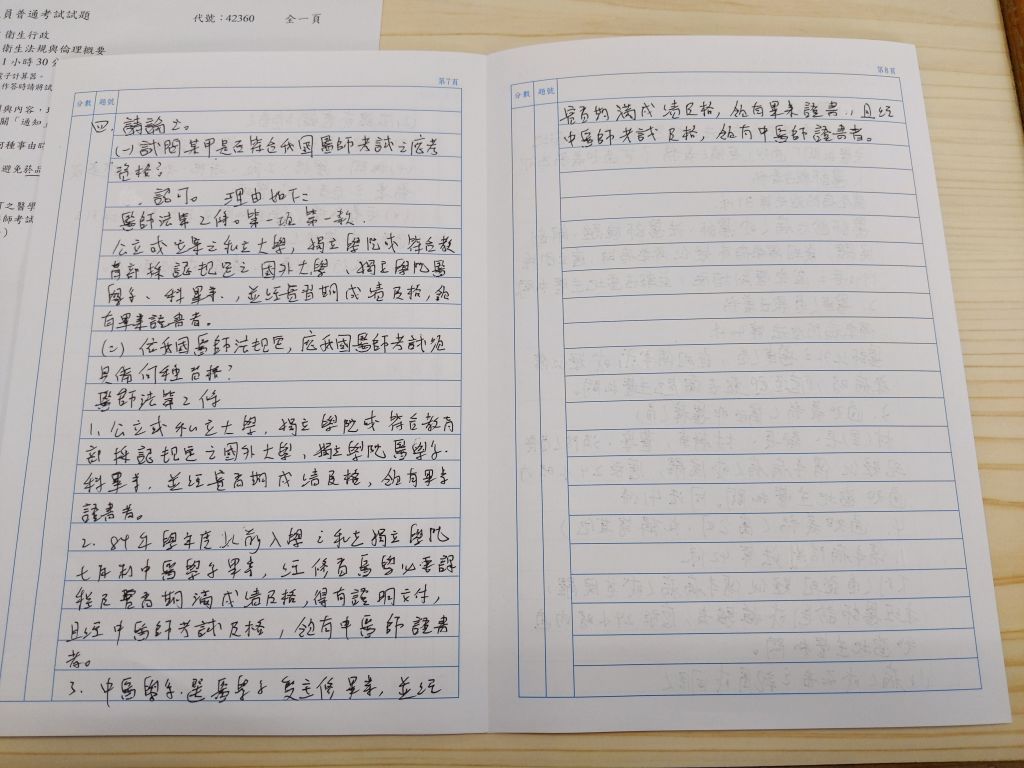 員普通考試試題
代號：42360
全一頁
衛生行政
衛生法規與倫理概要
1小時30分
電子計算器。
作答時請將試
與內容，
關「通知」
同種事由時
避免於
可之醫學
師考試
第7頁
分數 題號
四. 請論之。
(一) 試問某甲是否符合我國醫師考試之應考
資格？
認可。 理由如下:
醫師法第2條。第一項第一款.
公立或立案之私立大學、獨立學院或符合教
育部採認規定之國外大學、獨立學院醫
學系、科畢業，並經實習期成績及格，領
有畢業證書者。
(二) 依我國醫師法規定，應我國醫師考試須
具備何種資格？
醫師法第2條
1. 公立或私立大學、獨立學院或符合教育
部採認規定之國外大學、獨立學院醫學系.
科畢業，並經實習期成績及格，領有畢業
證書者。
2. 84年學年度以前入學之私立獨立學院
七年制中醫學系畢業，經修習醫學必要課
程及實習期滿成績及格，得有證明文件，
且經中醫師考試及格，領有中醫師證書
者。
3. 中醫學系.選醫學系雙主修畢業，並經
第8頁
分數 題號
實習期滿成績及格，領有畢業證書，且經
中醫師考試及格，領有中醫師證書者。